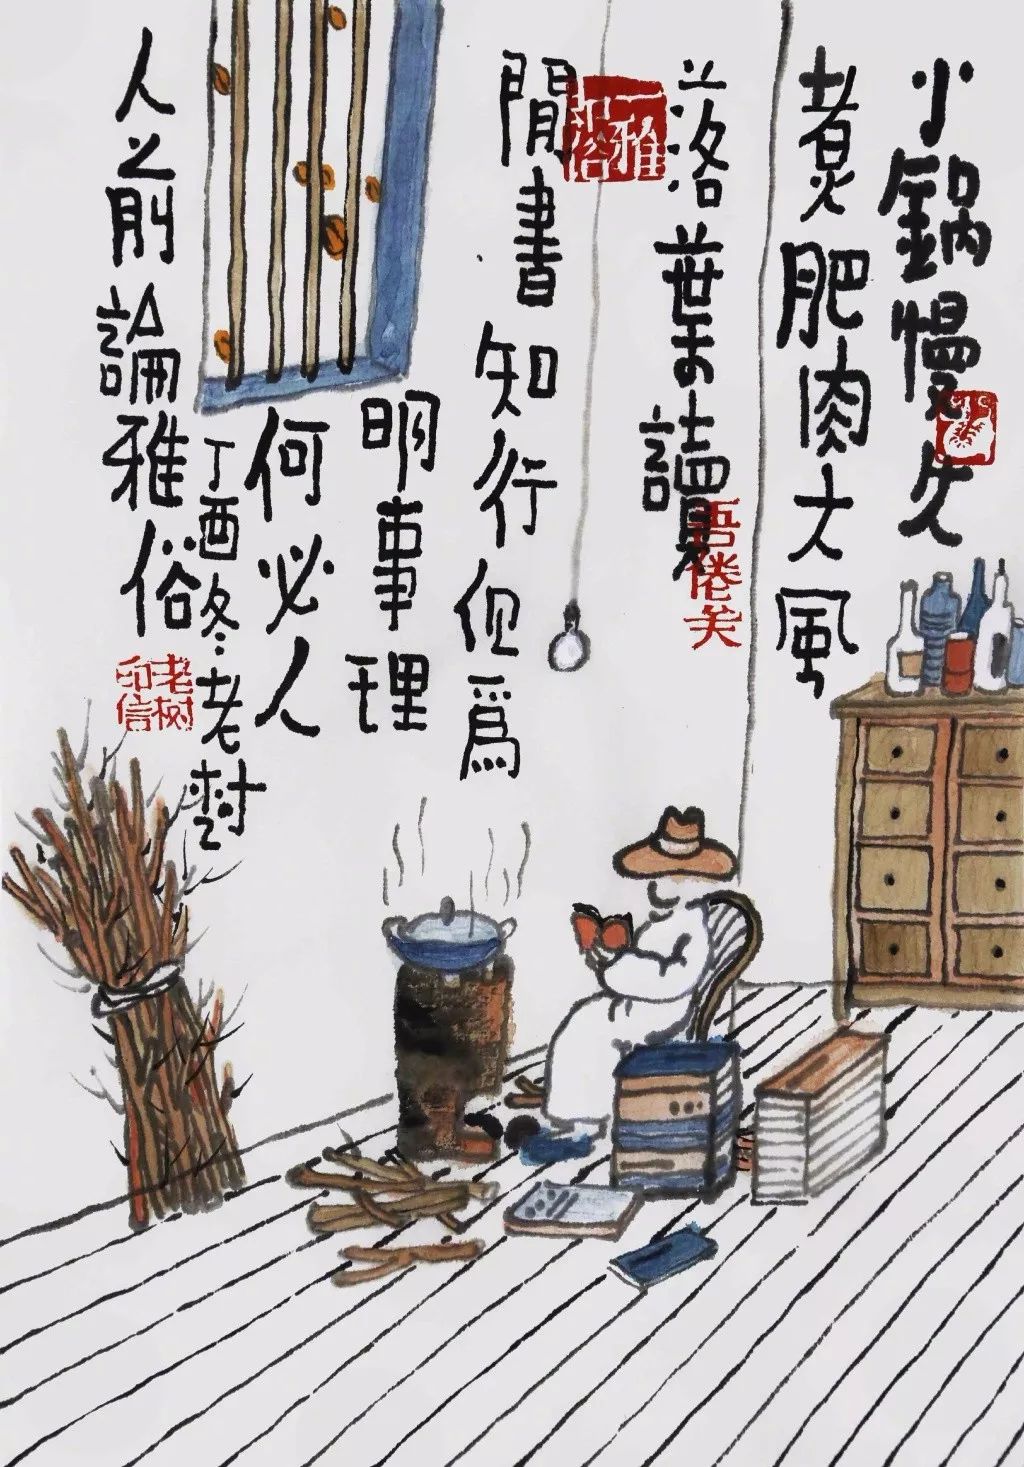 小鍋慢火
煮肥肉大風
落葉讀
閒書知行但爲
明事理
何必人
人前論雅俗
丁酉冬老樹
老树印信